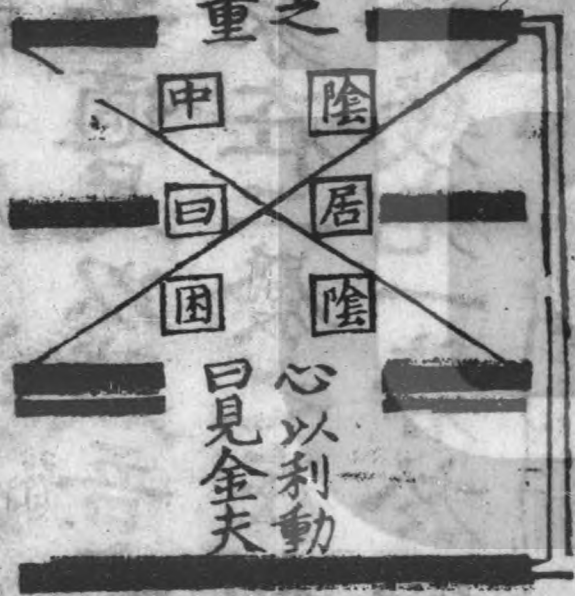 之
重
陰居陰
中曰困
心以利動
曰見金夫